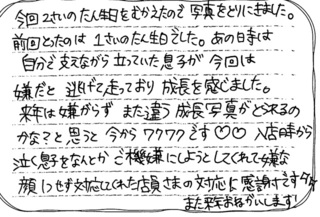 今回2さいのたん生日をむかえたので写真をとりにきました。
前回とったのは1さいのたん生日でした。あの時は
自分で支えながら立っていた息子が今回は
嫌だと逃げて走っており成長を感じました。
来年は嫌がらずまた違う成長写真がとれるの
かなぁと思うと今からワクワクです♡♡入店時から
泣く息子をなんとかご機嫌にしようとしてくれて嫌な
顔1つせず対応してくれた店員さまの対応に感謝です
また来年おねがいします!